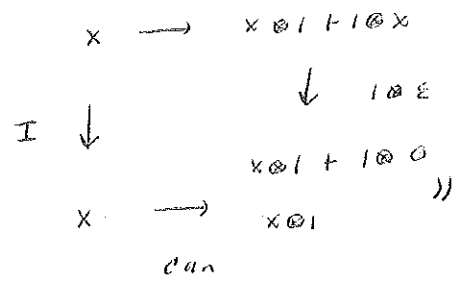 x → x⊗1 + 1⊗x
I ↓ ↓ 1⊗ε
x⊗1 + 1⊗0
x → x⊗1
can